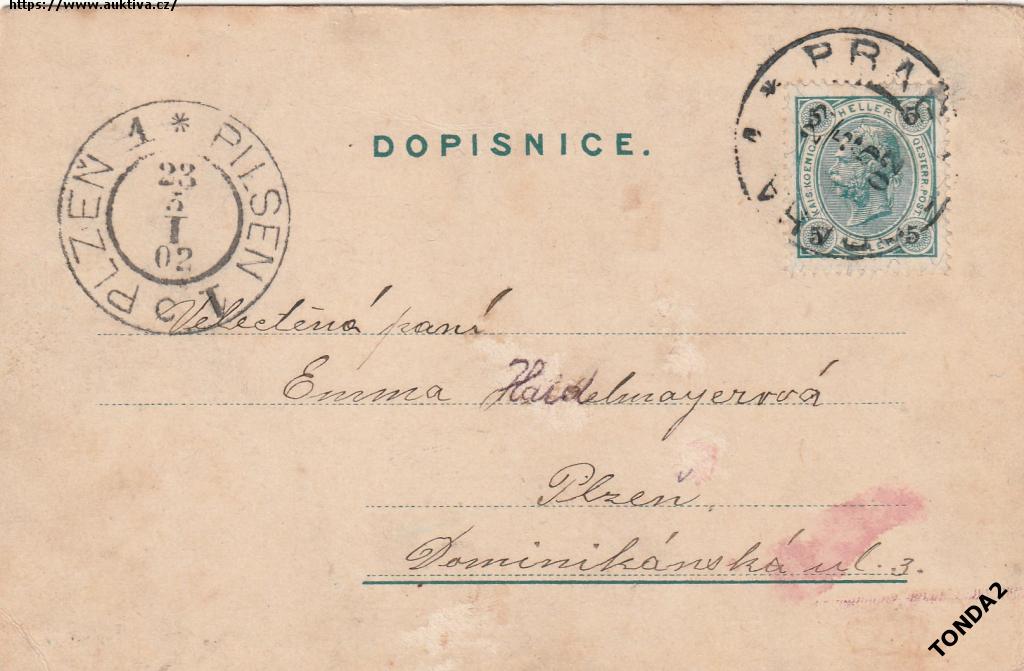 https://www.auktiva.cz/
DOPISNICE.
PLZEŇ 1 * PILSEN 1
23
5
I
02
PRAG
PRAHA
5 HELLER 5
KAIS. KOENIGL. OESTERR. POST
5 5
02
Velectěná paní
Emma Haidelmayerová
Plzeň,
Dominikánská ul. 3.
TONDA2